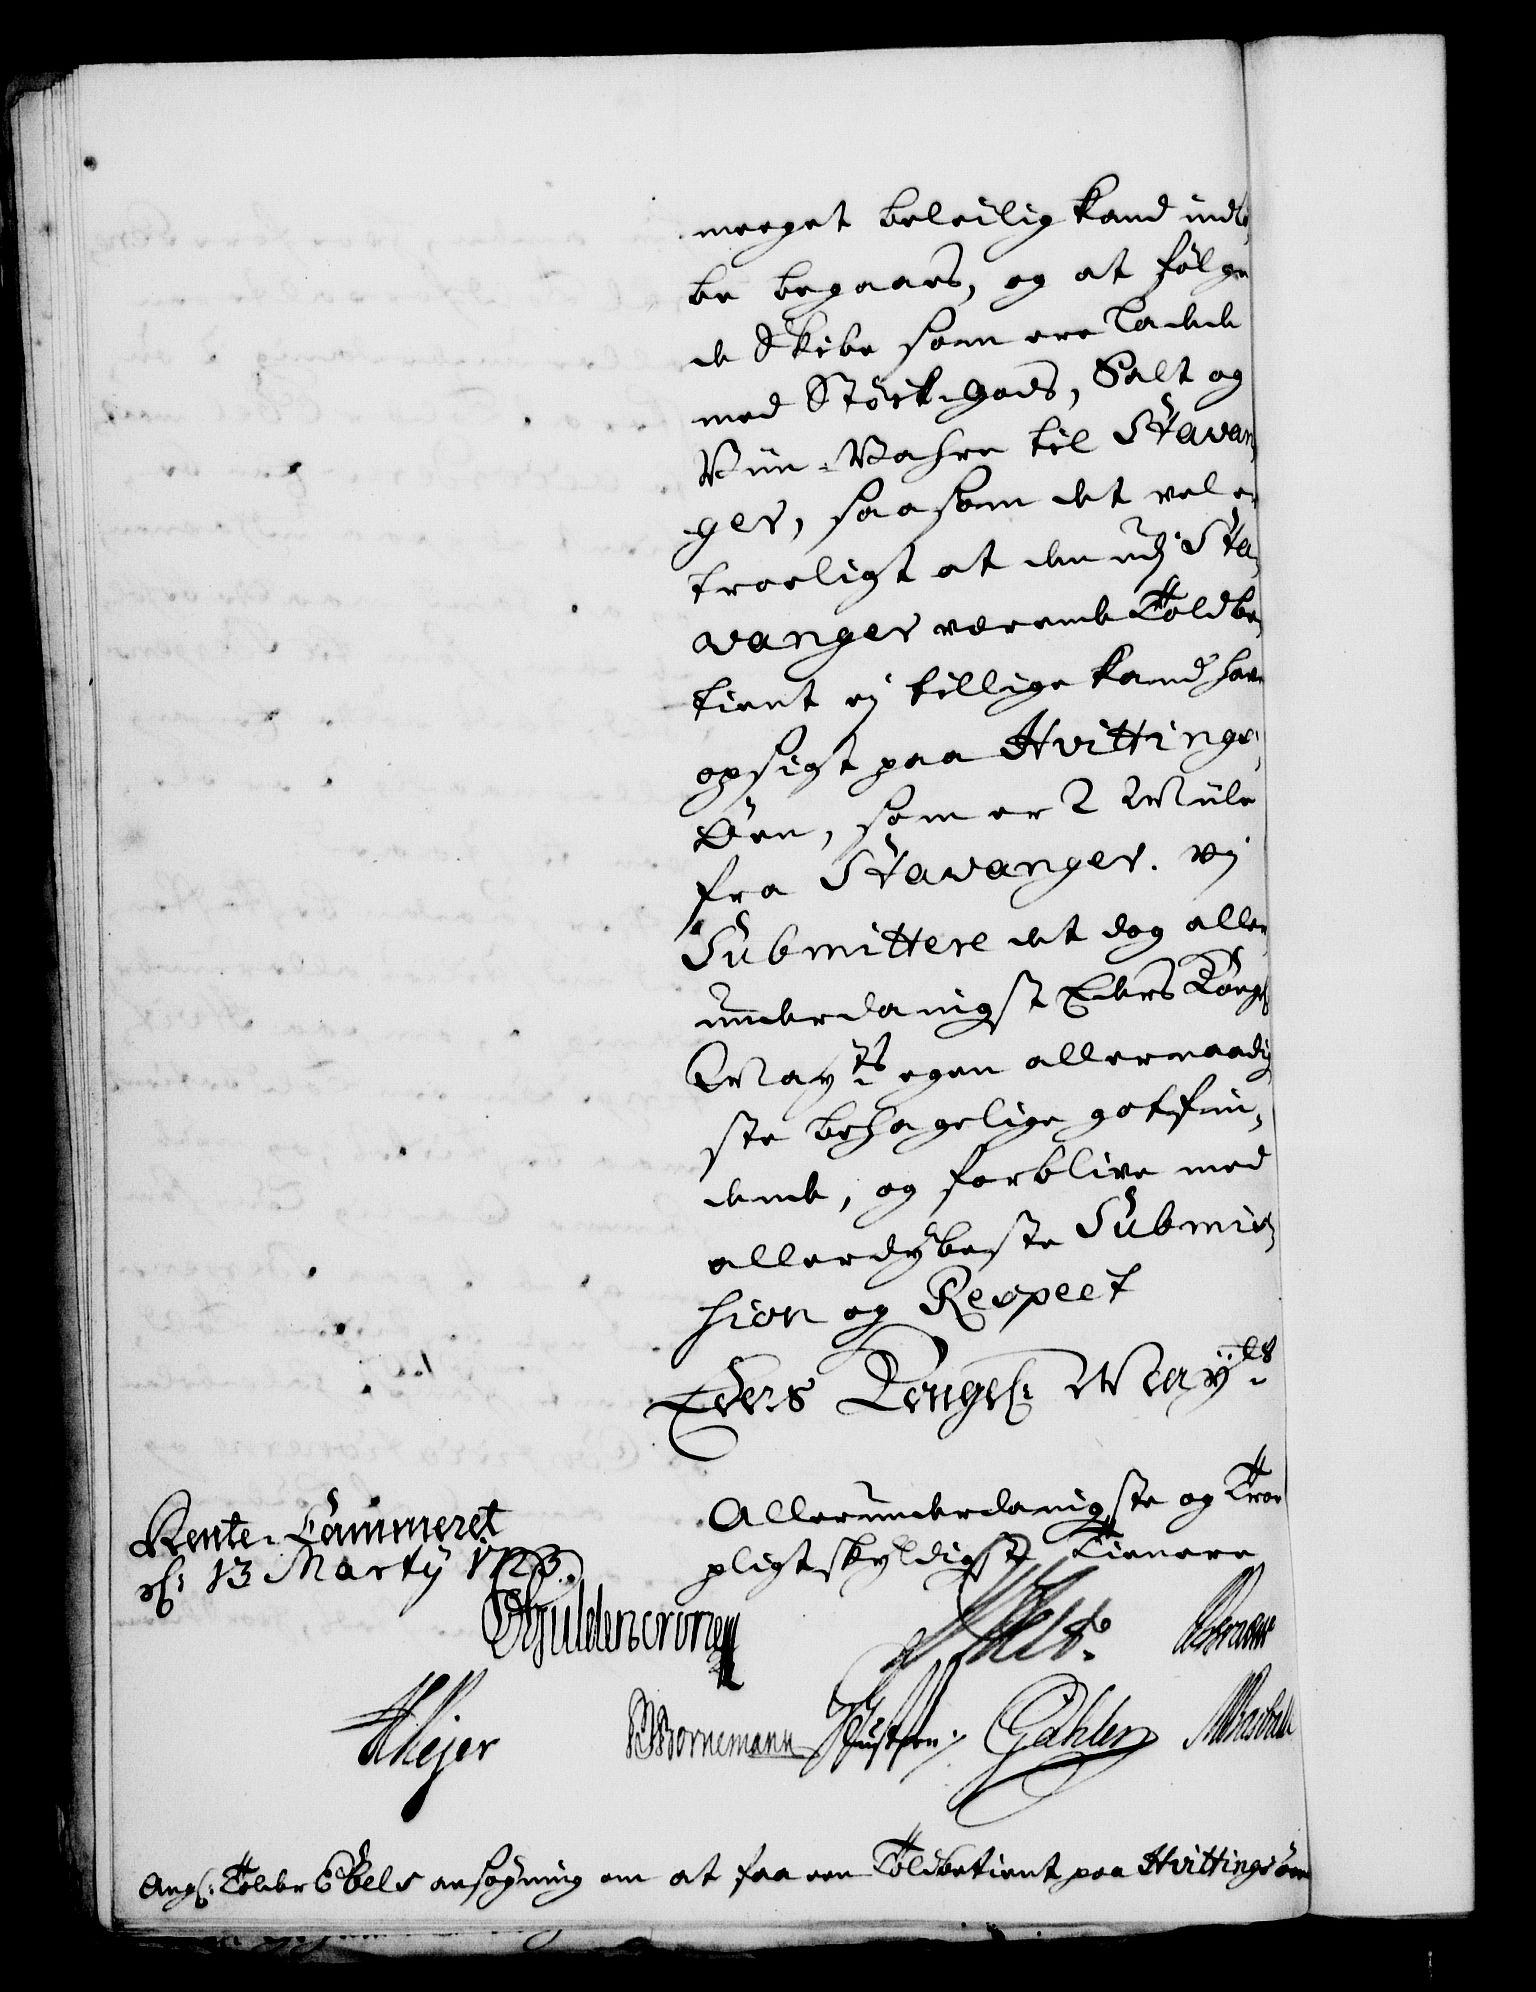 meeget beleilig kand indlø,
be begaaes, og at følge
de Skibe som ere ladde
med Støck-gods, Salt og
Viin-Vahre til Stavan,
ger, saasom det vel er
troeligt at den udj Sta,
vanger værende Toldbe,
tient ej tillige kand have
opsigt paa Hvittings,
Øen, som er 2 Miile
fra Stavanger. Vj
Submittere det dog aller,
underdanigst Eders Kongl:
May:ts egen allernaadig
ste behagelige gotfin,
dende, og forblive med
allerdybeste Submis,
sion og Respect
Eders Kongel: May:ts
Allerunderdanigste og Troe
pligtskyldigste Tienere
Rente-Cammeret
d: 13 Martij 1723.
Güldencrone
Meyer
Bornemann
Gähler
Ang: Tolder Ebels ansøgning om at faa een Toldbetient paa Hvittingsöen